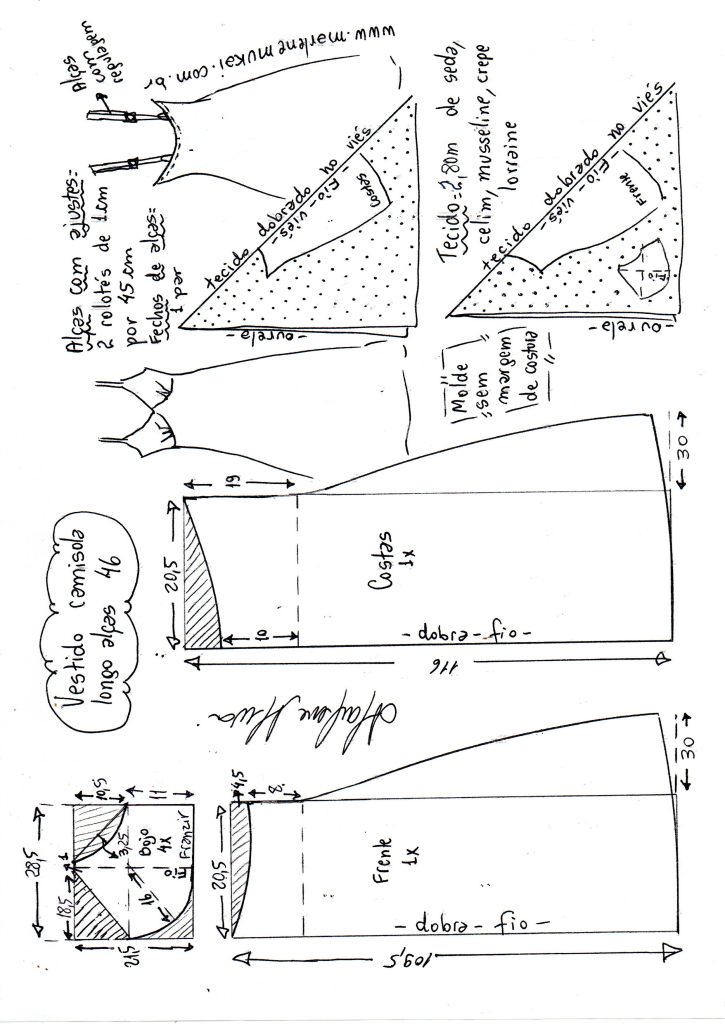 Vestido camisola
longo alças 46
Alças com ajustes=
2 rolotês de 1cm
por 45cm
Fechos de alças=
1 par
Alças
com
regulagem
www.marlenemukai.com.br
28,5
18,5
1
10,5
3,25
11
16
21,5
Bojo
4x
Fio
Franzir
20,5
4,5
8
Frente
1x
- dobra - fio -
109,5
30
20,5
19
10
Costas
1x
- dobra - fio -
116
30
Molde
sem
margem
de costura
tecido dobrado no viés
- Fio - viés -
Costas
- ourela -
Tecido=2,80m de seda,
celim, musseline, crepe
lorraine
tecido dobrado no viés
- Fio - viés -
Frente
Fio
- ourela -